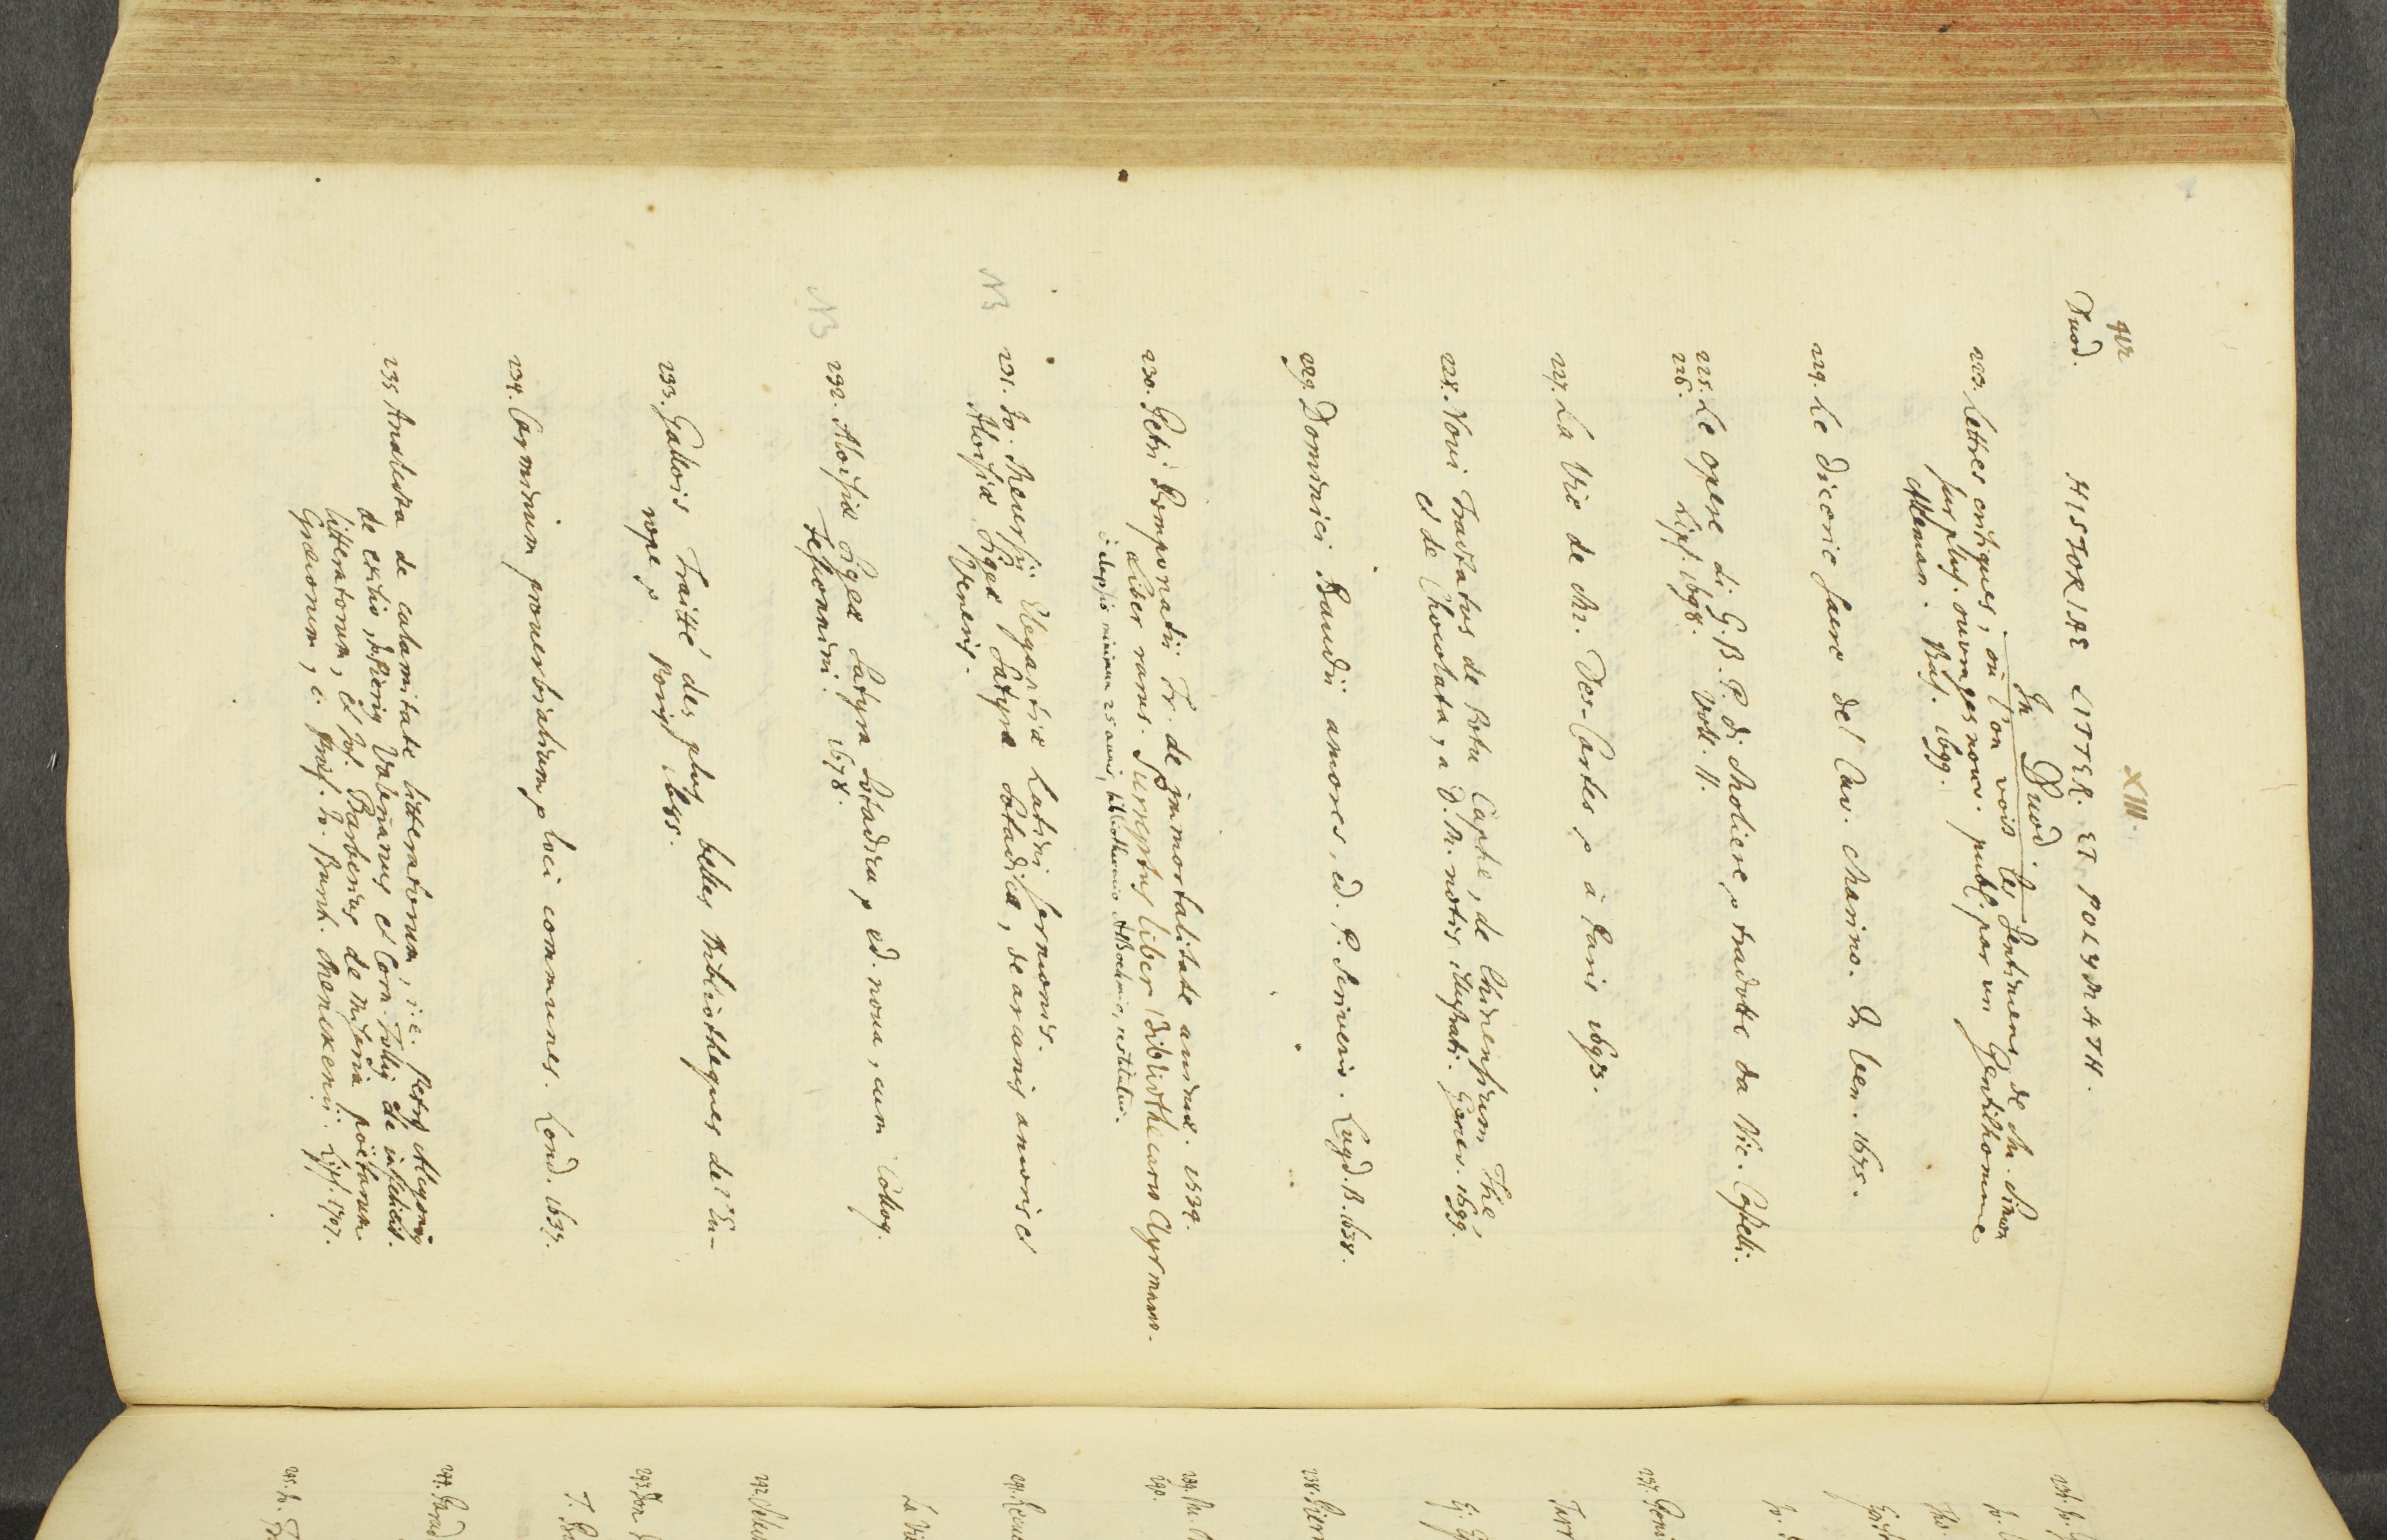 412
XIII.
Duod.
HISTORIAE LITTER. ET POLYMATH.
In Duod.
223. Lettres critiques, où l'on voit les Sentimens de Mr. Simon
sur plus. ouvrages nouv. publ. par un Gentilhomme
Alleman. Bâs. 1699.
224. Le dicerie sacre del Cav. Marino. In Ven. 1675.
225. Le opere di G. B. P. di Moliere, tradotte da Nic. Castelli.
226. Lips. 1698. Voll. II.
227. La Vie de Mr. Des-Cartes, à Paris 1693.
228. Novi Tractatus de Potu Caphe, de Chinensium Thé
et de Chocolata, a D. M. notis illustrati. Genev. 1699.
229. Dominici Baudii amores, ed. P. Scriverio. Lugd. B. 1638.
230. Petri Pomponatii Tr. de immortalitate animae. 1534.
Liber rarus. Surreptus liber bibliothecario Ayrmann.
elapsis minimum 25 annis, bibliothecario restitutus.
NB
231. Jo. Meursii Elegantiae Latini sermonis.
Aloisiae Sigeae Satyra Sotadica, de arcanis amoris et
Veneris.
NB
232. Aloisiae Sigeae Satyra Sotadica, ed. nova, cum Colloq.
Fescennini. 1678.
233. Gallois Traitté des plus belles Bibliotheques de l'Eu-
rope, Paris 1685.
234. Carminum prouerbialium, loci communes. Lond. 1637.
235. Analecta de calamitate litteratorum, i. e. Petrus Alcyonius
de exilio, Pierius Valerianus et Corn. Tollius de infelicit.
litteratorum, et Jos. Barberius de miseria poëtarum
Graecorum, c. praef. Jo. Burch. Menckenii. Lips. 1707.
238.
241.
242.
243. Don
244.
245. Jo.